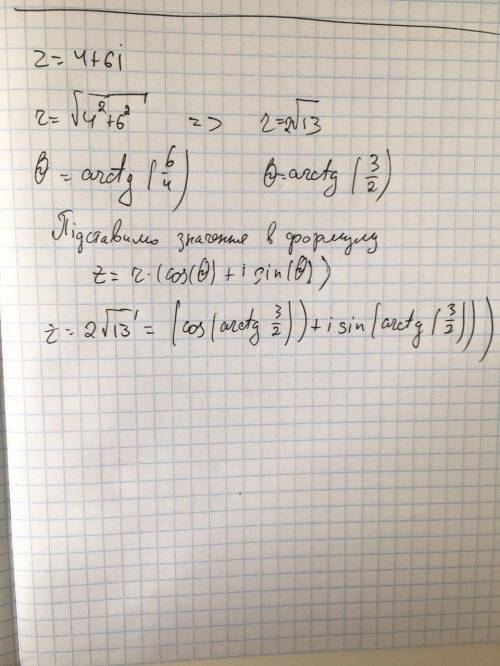 z = 4+6i
r = √(4²+6²) => r = 2√13
θ = arctg (6/4) θ = arctg (3/2)
Підставимо значення в формулу
z = r·(cos(θ) + i sin(θ))
z = 2√13 = (cos(arctg 3/2)) + i sin(arctg (3/2)))